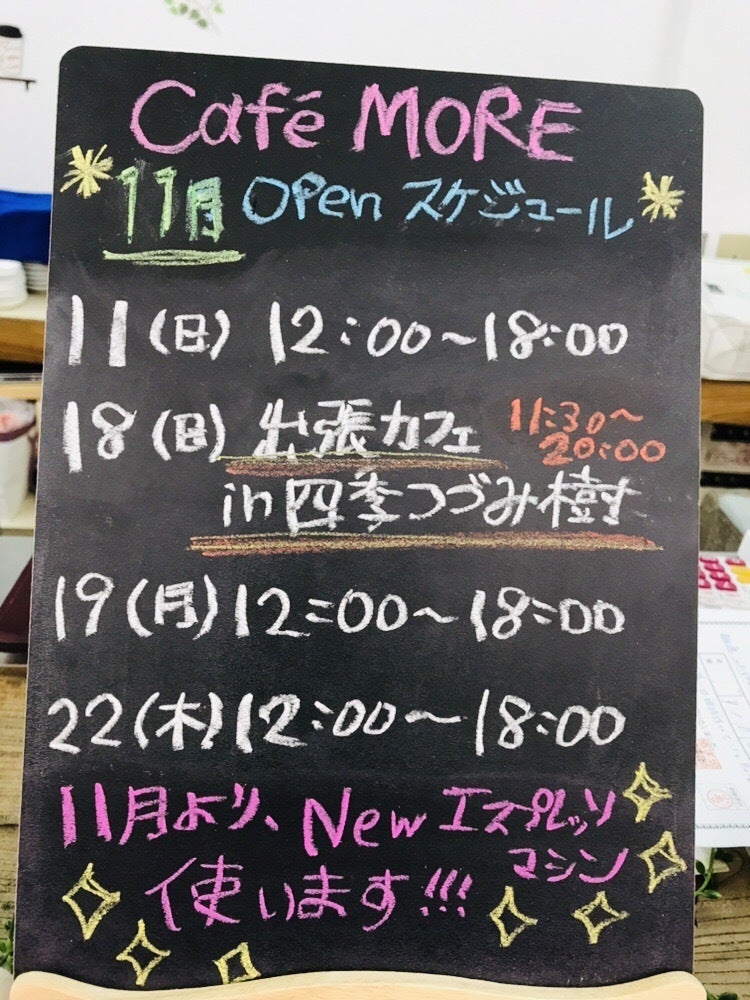 Café MORE
11月 Open スケジュール
11(日) 12:00~18:00
18(日) 出張カフェ 11:30~
20:00
in四季つづみ樹
19(月) 12:00~18:00
22(木) 12:00~18:00
11月より、New エスプレッソ
マシン
使います!!!